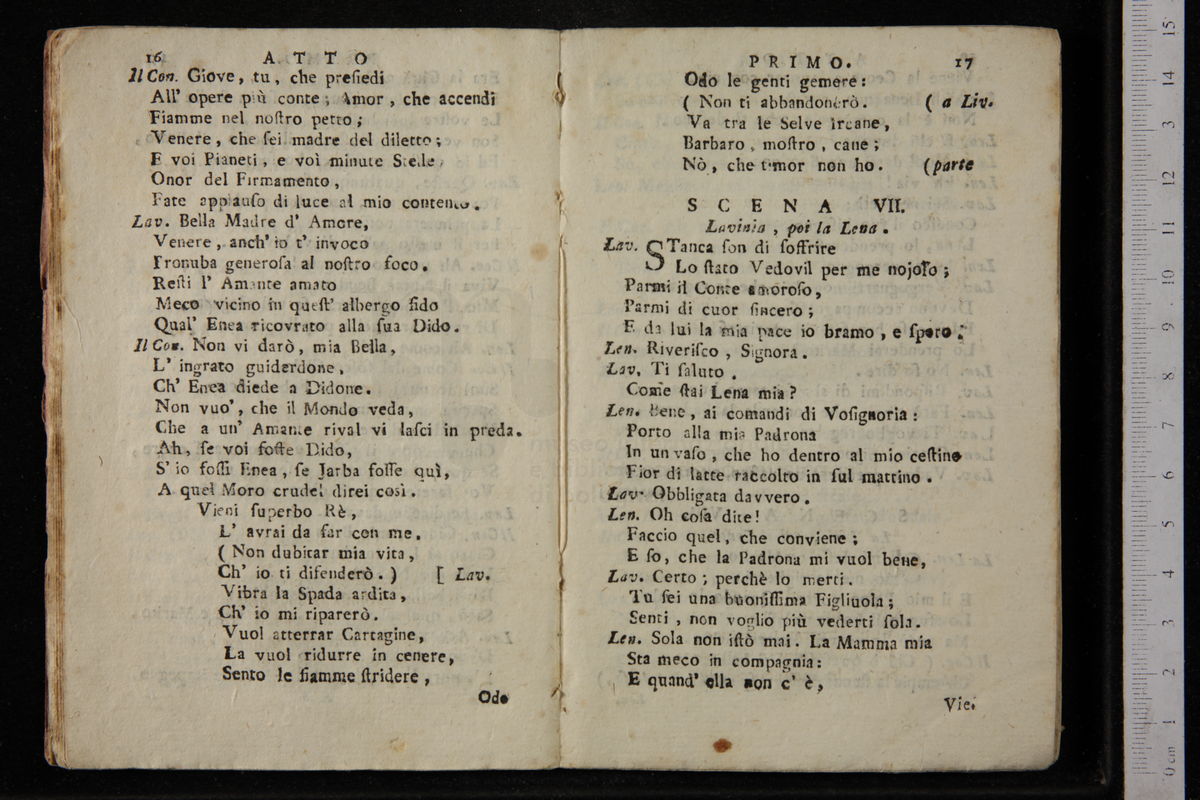 16 ATTO
Il Con. Giove, tu, che preſiedi
All' opere più conte; Amor, che accendi
Fiamme nel noſtro petto;
Venere, che ſei madre del diletto;
E voi Pianeti, e voi minute Stelle,
Onor del Firmamento,
Fate applauſo di luce al mio contento.
Lav. Bella Madre d' Amore,
Venere, anch' io t' invoco
Pronuba generoſa al noſtro foco.
Reſti l' Amante amato
Meco vicino in queſt' albergo fido
Qual' Enea ricovrato alla ſua Dido.
Il Con. Non vi darò, mia Bella,
L' ingrato guiderdone,
Ch' Enea diede a Didone.
Non vuo', che il Mondo veda,
Che a un' Amante rival vi laſci in preda.
Ah, ſe voi foſte Dido,
S' io foſſi Enea, ſe Jarba foſſe quì,
A quel Moro crudel direi così.
Vieni ſuperbo Rè,
L' avrai da far con me.
( Non dubitar mia vita,
Ch' io ti difenderò. ) [ Lav.
Vibra la Spada ardita,
Ch' io mi riparerò.
Vuol atterrar Cartagine,
La vuol ridurre in cenere,
Sento le fiamme ſtridere,
Odo
PRIMO. 17
Odo le genti gemere:
( Non ti abbandonerò. ( a Liv.
Va tra le Selve Ircane,
Barbaro, moſtro, cane;
Nò, che timor non ho. (parte
SCENA VII.
Lavinia, poi la Lena.
Lav. STanca ſon di ſoffrire
Lo ſtato Vedovil per me nojoſo;
Parmi il Conte amoroſo,
Parmi di cuor ſincero;
E da lui la mia pace io bramo, e ſpero.
Len. Riveriſco, Signora.
Lav. Ti ſaluto.
Come ſtai Lena mia?
Len. Bene, ai comandi di Voſignoria:
Porto alla mia Padrona
In un vaſo, che ho dentro al mio ceſtino
Fior di latte raccolto in ſul mattino.
Lav. Obbligata davvero.
Len. Oh coſa dite!
Faccio quel, che conviene;
E ſo, che la Padrona mi vuol bene,
Lav. Certo; perchè lo merti.
Tu ſei una buoniſſima Figliuola;
Senti, non voglio più vederti ſola.
Len. Sola non iſtò mai. La Mamma mia
Sta meco in compagnia:
E quand' ella non c' è,
Vie.